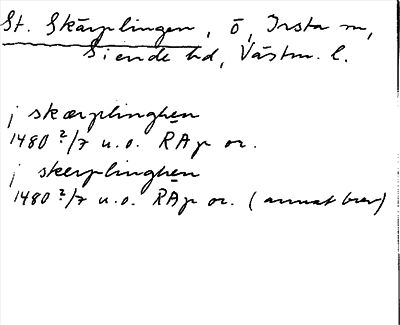 St. Skärplingen, ö, Irsta sn,
Siende hd, Västm. l.
j skærplinghen
1480 2/7 u.o. RAp or.
j skerplinghen
1480 2/7 u.o. RAp or. (annat brev)